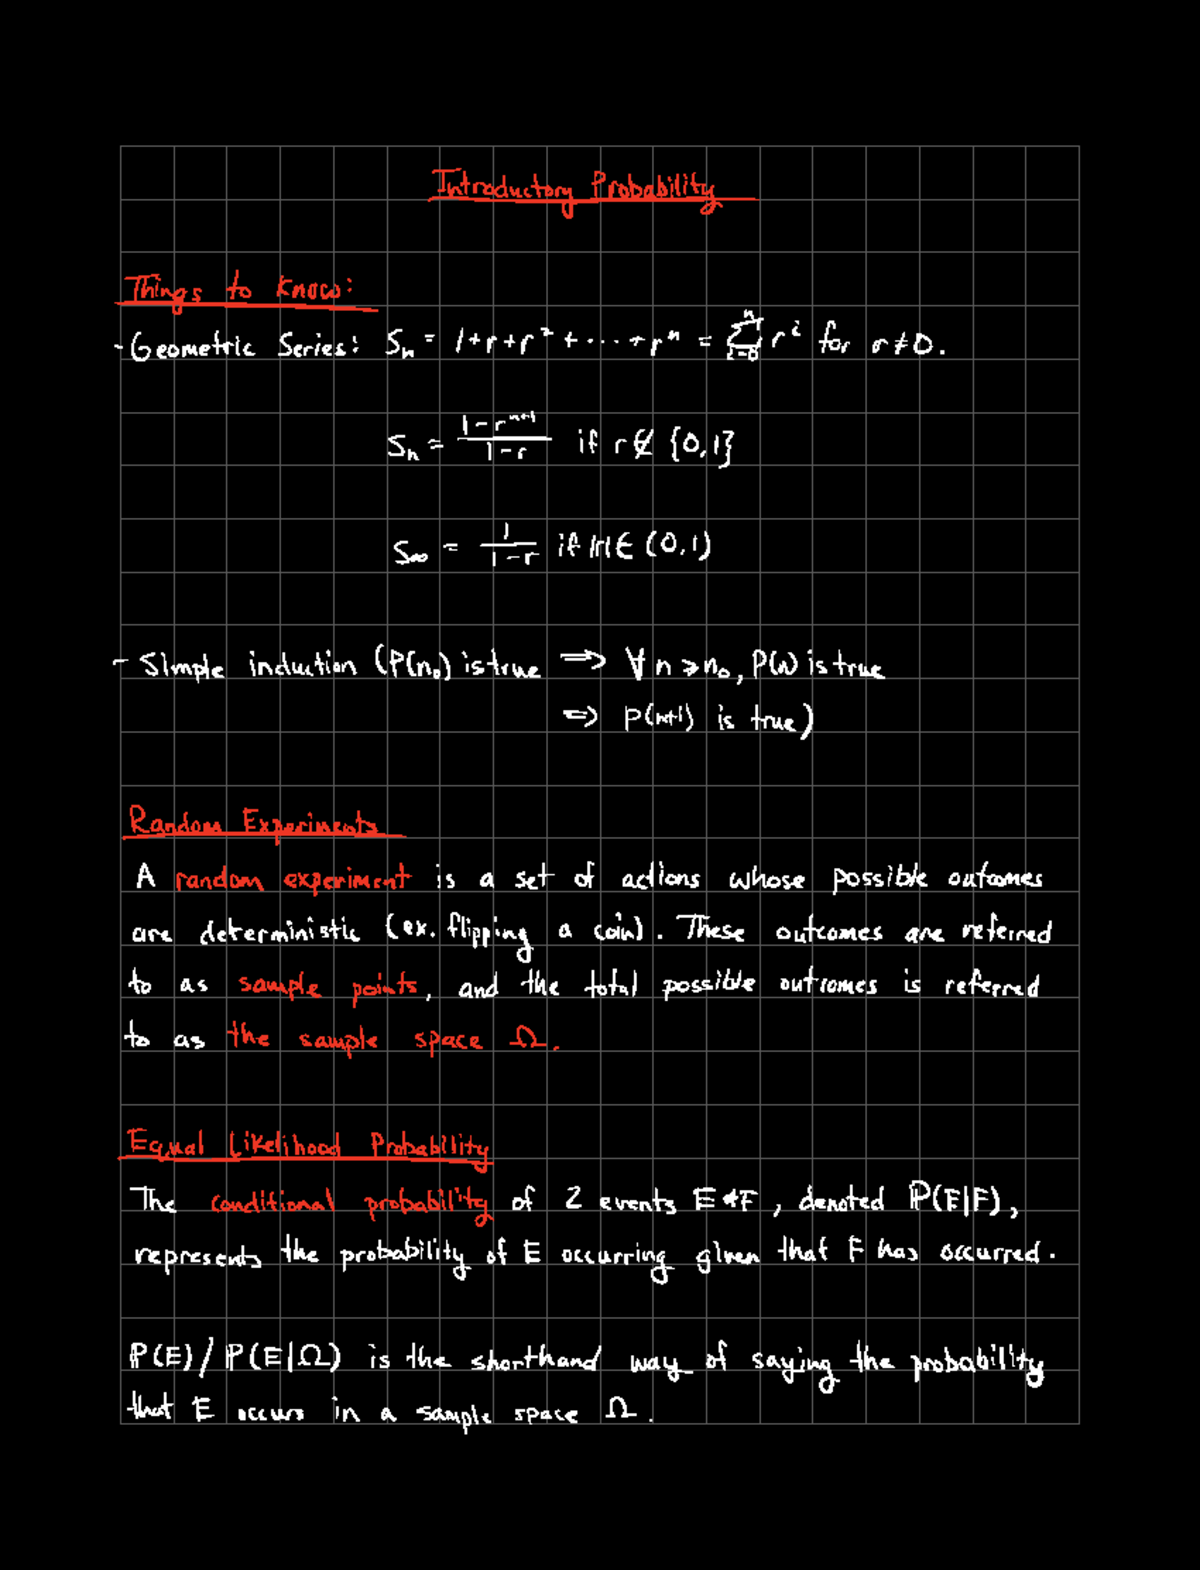 Introductory Probability
Things to Know:
- Geometric Series: Sₙ = 1+r+r²+···+rⁿ = ∑ⁿᵢ₌₀ rⁱ for r≠0.
Sₙ = (1-rⁿ⁺¹)/(1-r) if r∉{0,1}
S∞ = 1/(1-r) if |r|∈(0,1)
- Simple induction (P(n₀) is true ⇒ ∀n≥n₀, P(n) is true
⇒ P(n+1) is true)
Random Experiments
A random experiment is a set of actions whose possible outcomes
are deterministic (ex. flipping a coin). These outcomes are referred
to as sample points, and the total possible outcomes is referred
to as the sample space Ω.
Equal Likelihood Probability
The conditional probability of 2 events E & F, denoted ℙ(E|F),
represents the probability of E occurring given that F has occurred.
ℙ(E)/ℙ(E|Ω) is the shorthand way of saying the probability
that E occurs in a sample space Ω.